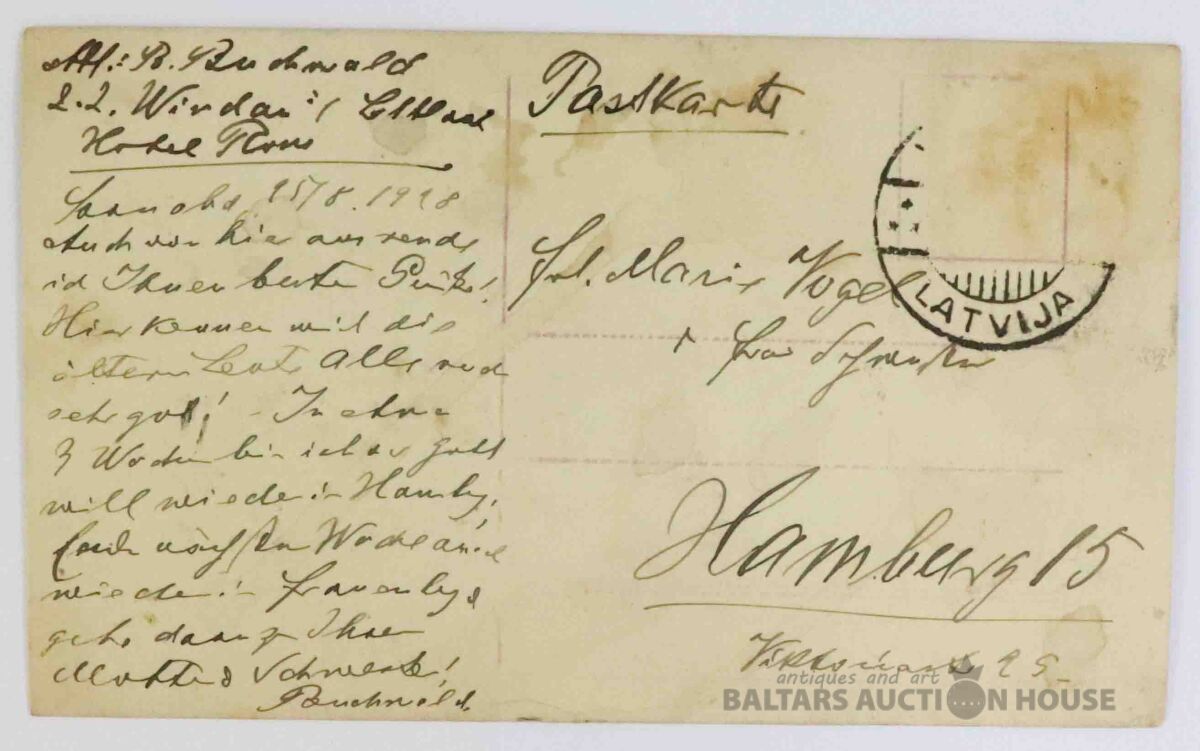 Abs.: B. Buchwald
z.Z. Windau / Lettland
Hotel Rom
Sonnabd. 25/8. 1928
Auch von hier aus sende
ich Ihnen beste Grüße!
Hier kennen mich die
ältern Leute Alle noch
sehr gut! - In etwa
3 Wochen bin ich so Gott
will wieder in Hambg.
Ende nächster Woche
wieder in Frauenbg &
gehe dann zu Ihrer
Mutter & Schwester!
Buchwald.
Postkarte
Frl. Marie Vogel
Frau
Hamburg 15
LATVIJA
antiques and art
BALTARS AUCTION HOUSE